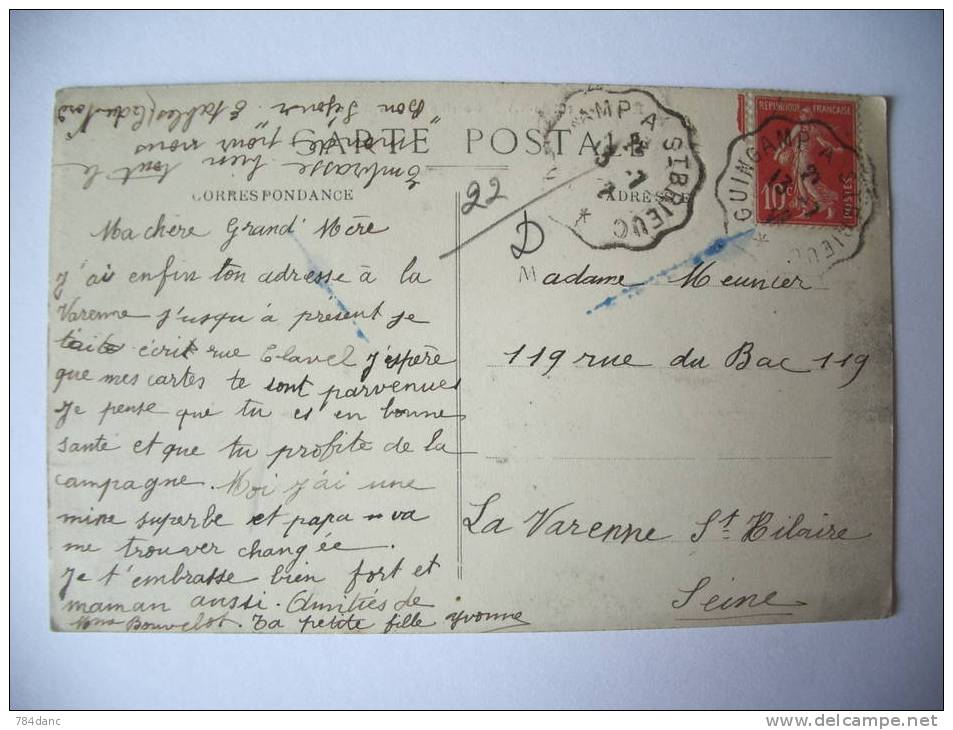 CARTE POSTALE
CORRESPONDANCE
ADRESSE
Ma chère Grand' Mère
J'ai enfin ton adresse à la
Varenne j'usqu'à présent je
t'ait écrit rue Clavel j'espère
que mes cartes te sont parvenues
Je pense que tu es en bonne
santé et que tu profite de la
campagne. Moi j'ai une
mine superbe et papa va
me trouver changée.
Je t'embrasse bien fort et
maman aussi. Amitiés de
Mme Bouvelot. Ta petite fille Yvonne
Embrasse bien tout le
monde pour nous
"Bon Séjour" Etables (Côtes du Nord
22
D
Madame Meunier
119 rue du Bac 119
La Varenne St Hilaire
Seine
GUINGAMP A ST BRIEUC
GUINGAMP A ST BRIEUC
REPUBLIQUE FRANÇAISE
10c
POSTES
784danc
www.delcampe.net